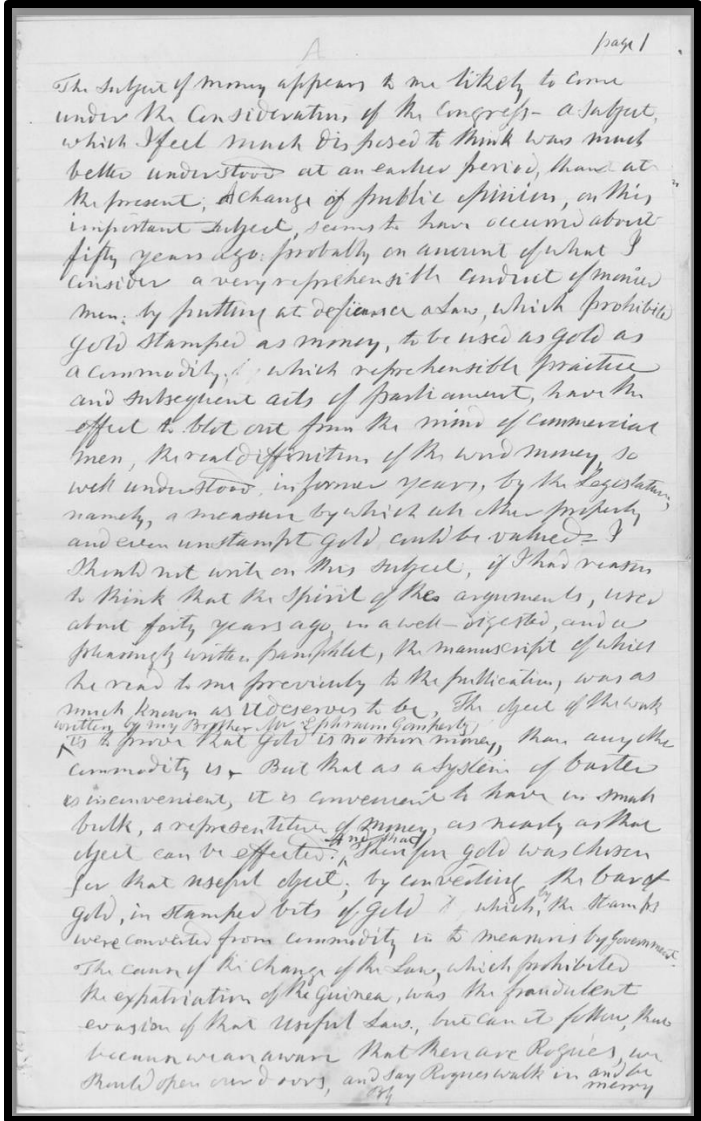 A
page 1
The subject of money appears to me likely to come
under the Consideration of the Congress - a subject,
which I feel much disposed to think was much
better understood at an earlier period, than at
the present; A change of public opinion, on this
important subject, seems to have occured about
fifty years ago: probably on amount of what I
consider a very reprehensible conduct of monied
men: by putting at defiance a Law, which prohibited
gold stamped as money, to be used as gold as
a commodity; which reprehensible practice
and subsequent acts of parliament, have the
effect to blot out from the mind of commercial
men, the real diffinition of the word money, so
well understood in former years, by the Legislature,
namely, a measure by which all other property
and even unstampt gold could be valued - I
should not write on this subject, if I had reason
to think that the spirit of the arguments, used
about forty years ago in a well-digested, and a
pleasingly written pamphlet, the manuscript of which
he read to me previously to the publication, was as
much known as it deserves to be. The object of the work
written by my Brother Mr Ephraim Gompertz,
is to prove that gold is no more money, than any other
commodity is. But that as a system of barter
is inconvenient, it is convenient to have in small
bulk, a representative of money, as nearly as that
object can be effected. And that
Therefore gold was chosen
for that useful object; by converting the bar of
gold, in stamped bits of gold which, by the stamps
were converted from commodity in to measures by Government.
The cause of the change of the Law, which prohibited
the expatriation of the Guinea, was the fraudulent
evasion of that useful Law, but can it follow, that
because we are aware that there are Rogues, we
should open our doors, and say Rogues walk in and be
merry